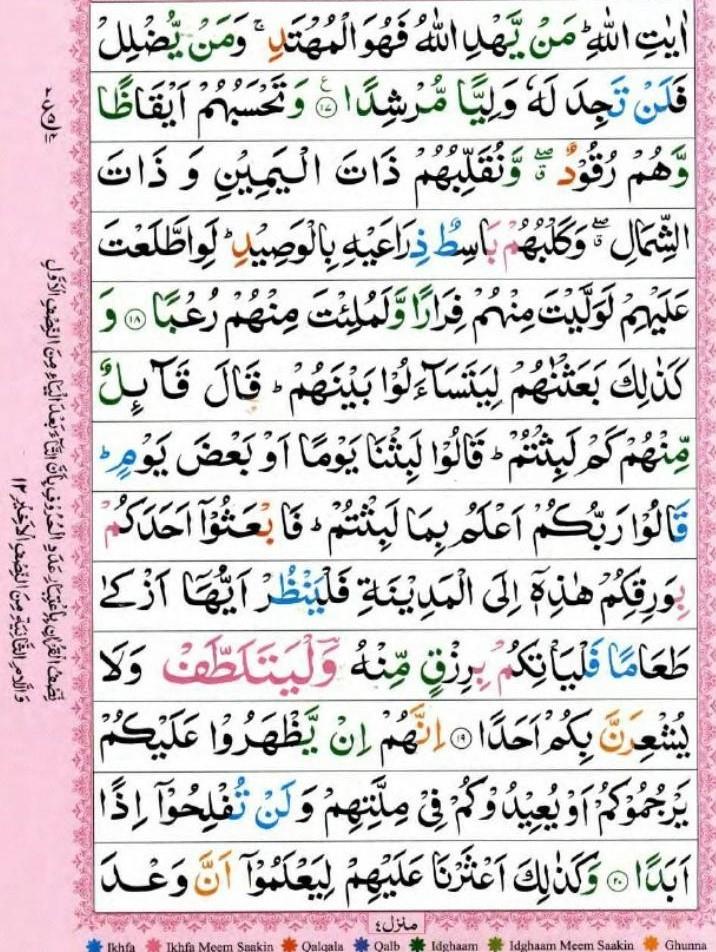 اٰيٰتِ اللّٰهِ ؕ مَنْ يَّهْدِ اللّٰهُ فَهُوَ الْمُهْتَدِ ۚ وَمَنْ يُّضْلِلْ
فَلَنْ تَجِدَ لَهٗ وَلِيًّا مُّرْشِدًا ﴿۱۷﴾ ع وَتَحْسَبُهُمْ اَيْقَاظًا
وَّهُمْ رُقُوْدٌ ۖۗ وَّنُقَلِّبُهُمْ ذَاتَ الْيَمِيْنِ وَ ذَاتَ
الشِّمَالِ ۖۗ وَكَلْبُهُمْ بَاسِطٌ ذِرَاعَيْهِ بِالْوَصِيْدِ ؕ لَوِاطَّلَعْتَ
عَلَيْهِمْ لَوَلَّيْتَ مِنْهُمْ فِرَارًا وَّلَمُلِئْتَ مِنْهُمْ رُعْبًا ﴿۱۸﴾ وَ
كَذٰلِكَ بَعَثْنٰهُمْ لِيَتَسَآءَلُوْا بَيْنَهُمْ ؕ قَالَ قَآئِلٌ
مِّنْهُمْ كَمْ لَبِثْتُمْ ؕ قَالُوْا لَبِثْنَا يَوْمًا اَوْ بَعْضَ يَوْمٍ ؕ
قَالُوْا رَبُّكُمْ اَعْلَمُ بِمَا لَبِثْتُمْ ؕ فَابْعَثُوْۤا اَحَدَكُمْ
بِوَرِقِكُمْ هٰذِهٖۤ اِلَى الْمَدِيْنَةِ فَلْيَنْظُرْ اَيُّهَاۤ اَزْكٰى
طَعَامًا فَلْيَاْتِكُمْ بِرِزْقٍ مِّنْهُ وَلْيَتَلَطَّفْ وَلَا
يُشْعِرَنَّ بِكُمْ اَحَدًا ﴿۱۹﴾ اِنَّهُمْ اِنْ يَّظْهَرُوْا عَلَيْكُمْ
يَرْجُمُوْكُمْ اَوْ يُعِيْدُوْكُمْ فِيْ مِلَّتِهِمْ وَلَنْ تُفْلِحُوْۤا اِذًا
اَبَدًا ﴿۲۰﴾ وَكَذٰلِكَ اَعْثَرْنَا عَلَيْهِمْ لِيَعْلَمُوْۤا اَنَّ وَعْدَ
منزل ٤
نِصْفُ الْقُرْاٰنِ بِاعْتِبَارِ عَدَدِ الْحُرُوْفِ بِاَنَّ التَّاءَ بَعْدَ الْيَاءِ مِنَ النِّصْفِ الْاَوَّلِ
وَاللَّامَ الثَّانِيَةَ مِنَ النِّصْفِ الْاَخِيْرِ ۱۲
Ikhfa Ikhfa Meem Saakin Qalqala Qalb Idghaam Idghaam Meem Saakin Ghunna